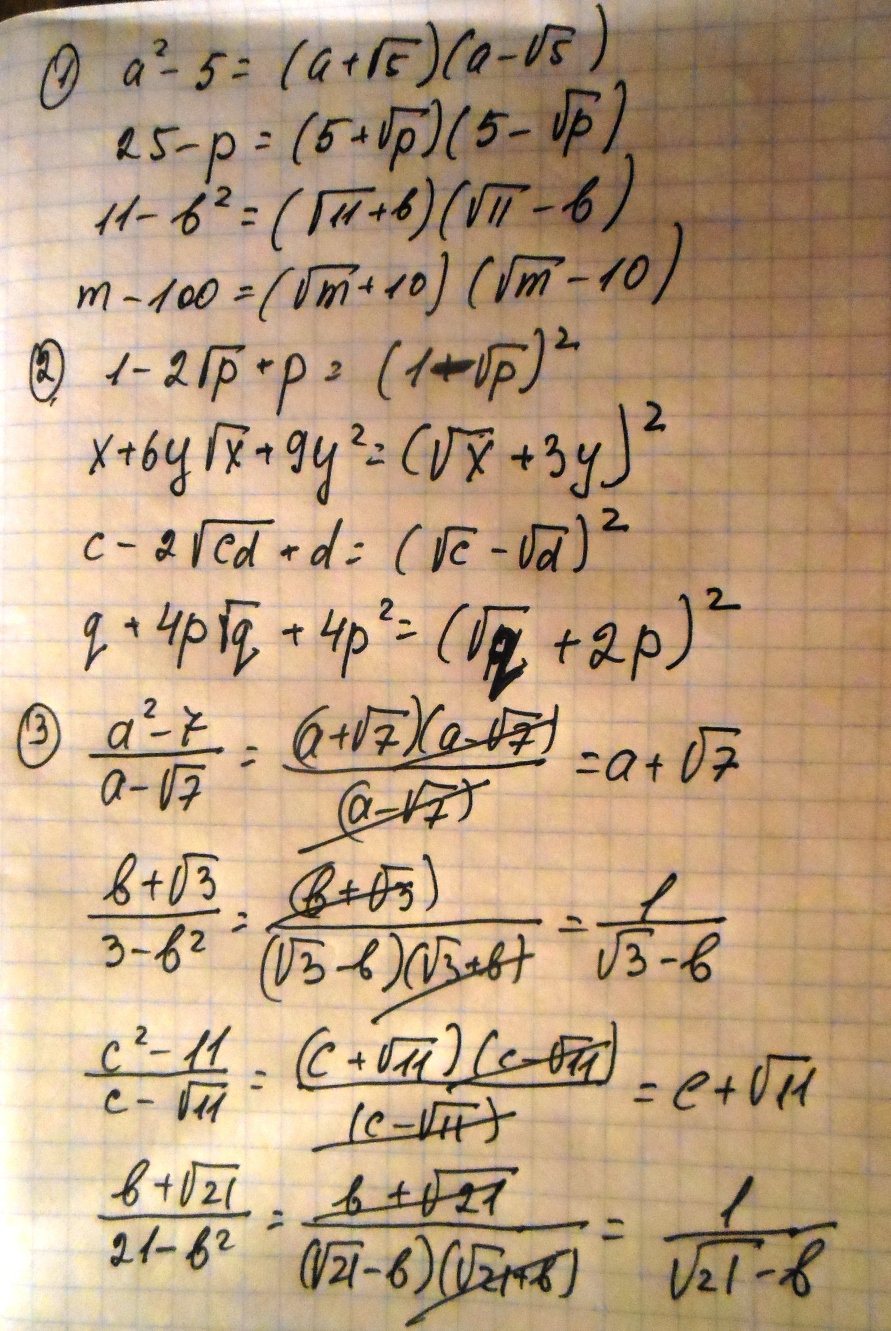 ① a² - 5 = (a + √5)(a - √5)
25 - p = (5 + √p)(5 - √p)
11 - b² = (√11 + b)(√11 - b)
m - 100 = (√m + 10)(√m - 10)
② 1 - 2√p + p = (1 - √p)²
x + 6y√x + 9y² = (√x + 3y)²
c - 2√cd + d = (√c - √d)²
q + 4p√q + 4p² = (√q + 2p)²
③ (a² - 7)/(a - √7) = (a + √7)(a - √7)/(a - √7) = a + √7
(b + √3)/(3 - b²) = (b + √3)/((√3 - b)(√3 + b)) = 1/(√3 - b)
(c² - 11)/(c - √11) = (c + √11)(c - √11)/(c - √11) = c + √11
(b + √21)/(21 - b²) = (b + √21)/((√21 - b)(√21 + b)) = 1/(√21 - b)